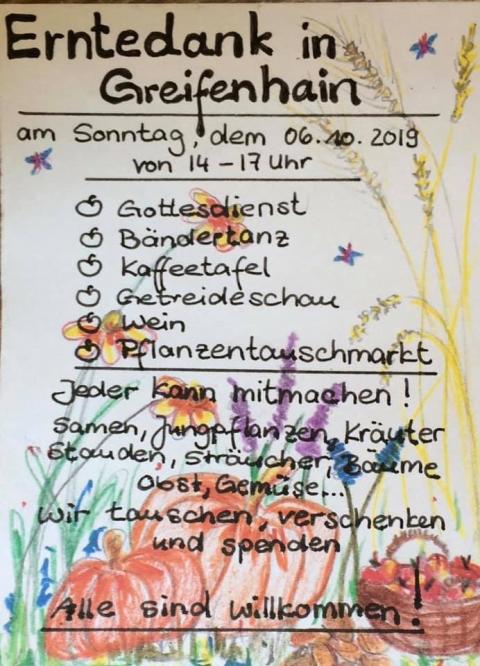 Erntedank in
Greifenhain
am Sonntag, dem 06.10.2019
von 14-17 Uhr
Gottesdienst
Bändertanz
Kaffeetafel
Getreideschau
Wein
Pflanzentauschmarkt
Jeder kann mitmachen!
Samen, Jungpflanzen, Kräuter
Stauden, Sträucher, Bäume
Obst, Gemüse,...
Wir tauschen, verschenken
und spenden
Alle sind willkommen!